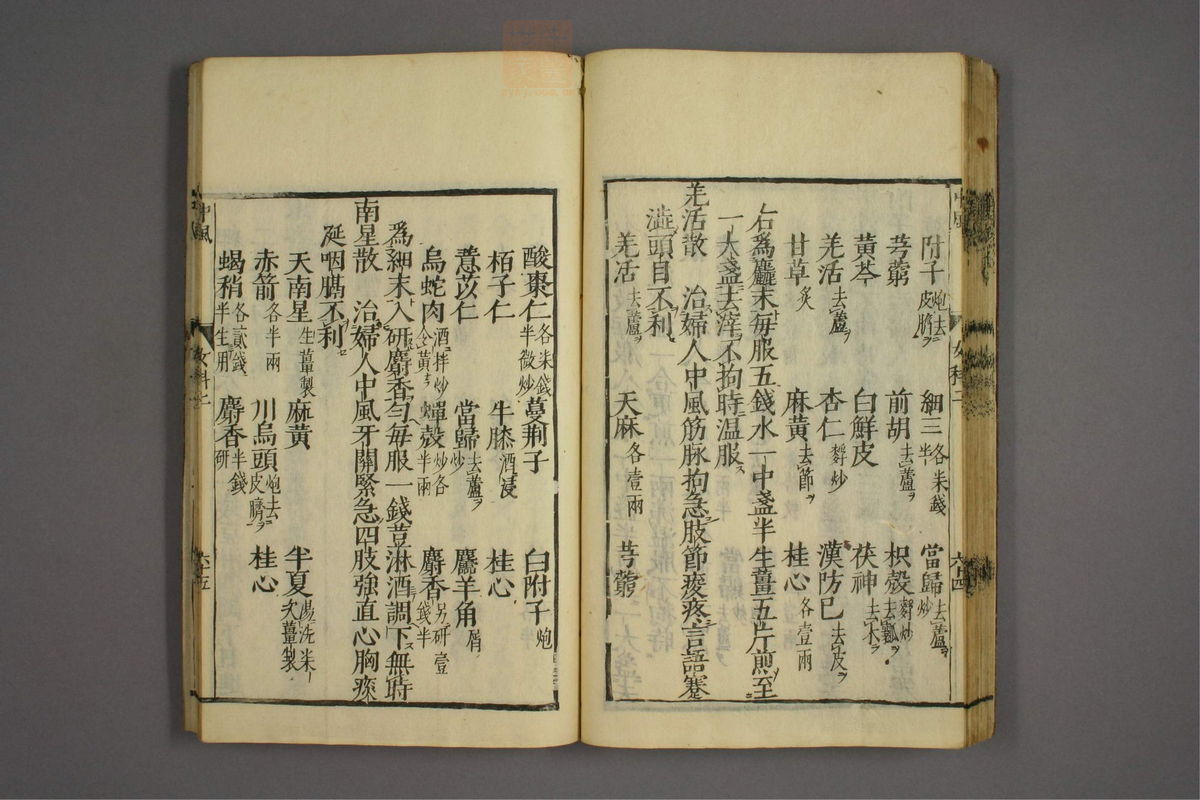 附子炮去皮臍 細辛各半錢 當歸去蘆炒
芎藭 前胡去蘆 枳殼麩炒去瓤
黄芩 白鮮皮 茯神去木
羌活去蘆 杏仁麩炒 漢防已去皮
甘草炙 麻黄去節 桂心各壹兩
右爲麤末每服五錢水一中盞半生薑五片煎至
一大盞去滓不拘時温服
羌活散 治婦人中風筋脉拘急肢節痠疼言語蹇
澁頭目不利
羌活去蘆 天麻各壹兩 芎藭
酸棗仁各半微炒 蔓荆子 白附子炮
栢子仁 牛膝酒浸 桂心
薏苡仁 當歸去蘆炒 麢羊角屑
烏蛇肉酒拌炒令黄 蟬殼炒各半兩 麝香另研壹錢半
爲細末入研麝香勻每服一錢荳淋酒調下無時
南星散 治婦人中風牙關緊急四肢強直心胸痰
延咽膈不利
天南星生薑製 麻黄 半夏湯洗次薑製
赤箭各半兩 川烏頭炮去皮臍 桂心
蝎稍各貳錢半生用 麝香半錢研
中風
女科二
六十四
六十五